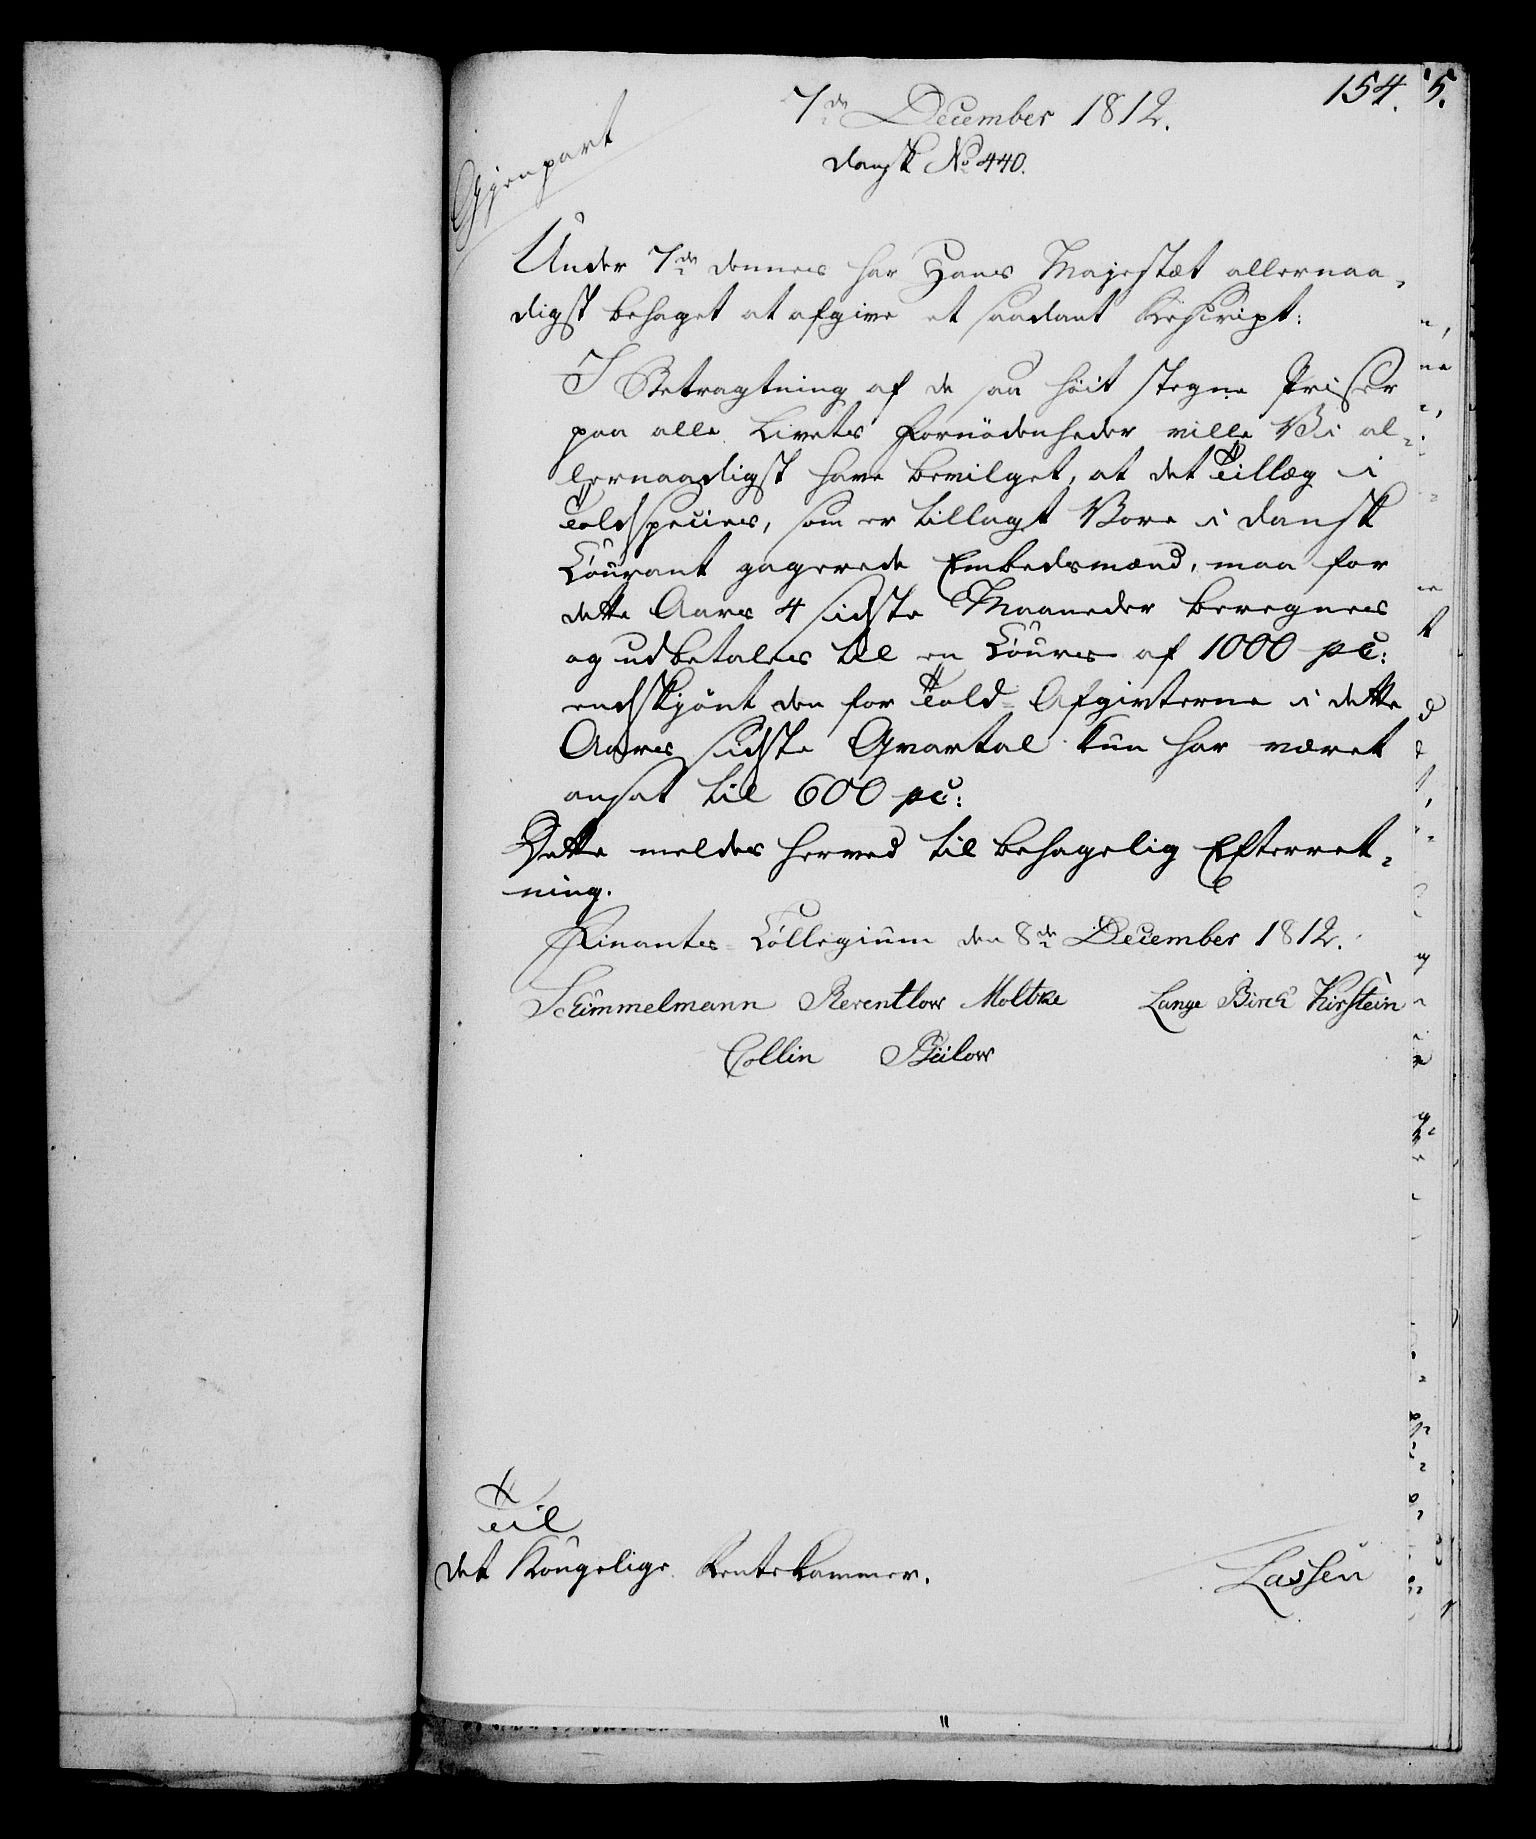 154.
5.
7de December 1812.
Dansk No 440.
Gjenpart
Under 7de dennes har Hans Majestæt allernaa-
digst behaget at afgive et saadant Rescript:
I Betragtning af de saa höit stegne Priser
paa alle Livets Fornödenheder ville Vi al-
lernaadigst have bevilget, at det Tillæg i
Toldspecies, som er tillagt Vore i dansk
Courant gagerede Embedsmænd, maa for
dette Aars 4 sidste Maaneder beregnes
og udbetales til en Cours af 1000 pC:
endskjönt den for Told-Afgivterne i dette
Aares sidste Qvartal kun har været
ansat til 600 pC:
Dette meldes herved til behagelig Efterret-
ning.
Finants-Collegium den 8de December 1812.
Schimmelmann Reventlow Moltke Lange Birch Kirstein
Collin Bülow
Til
det Kongelige Rentekammer.
Lassen